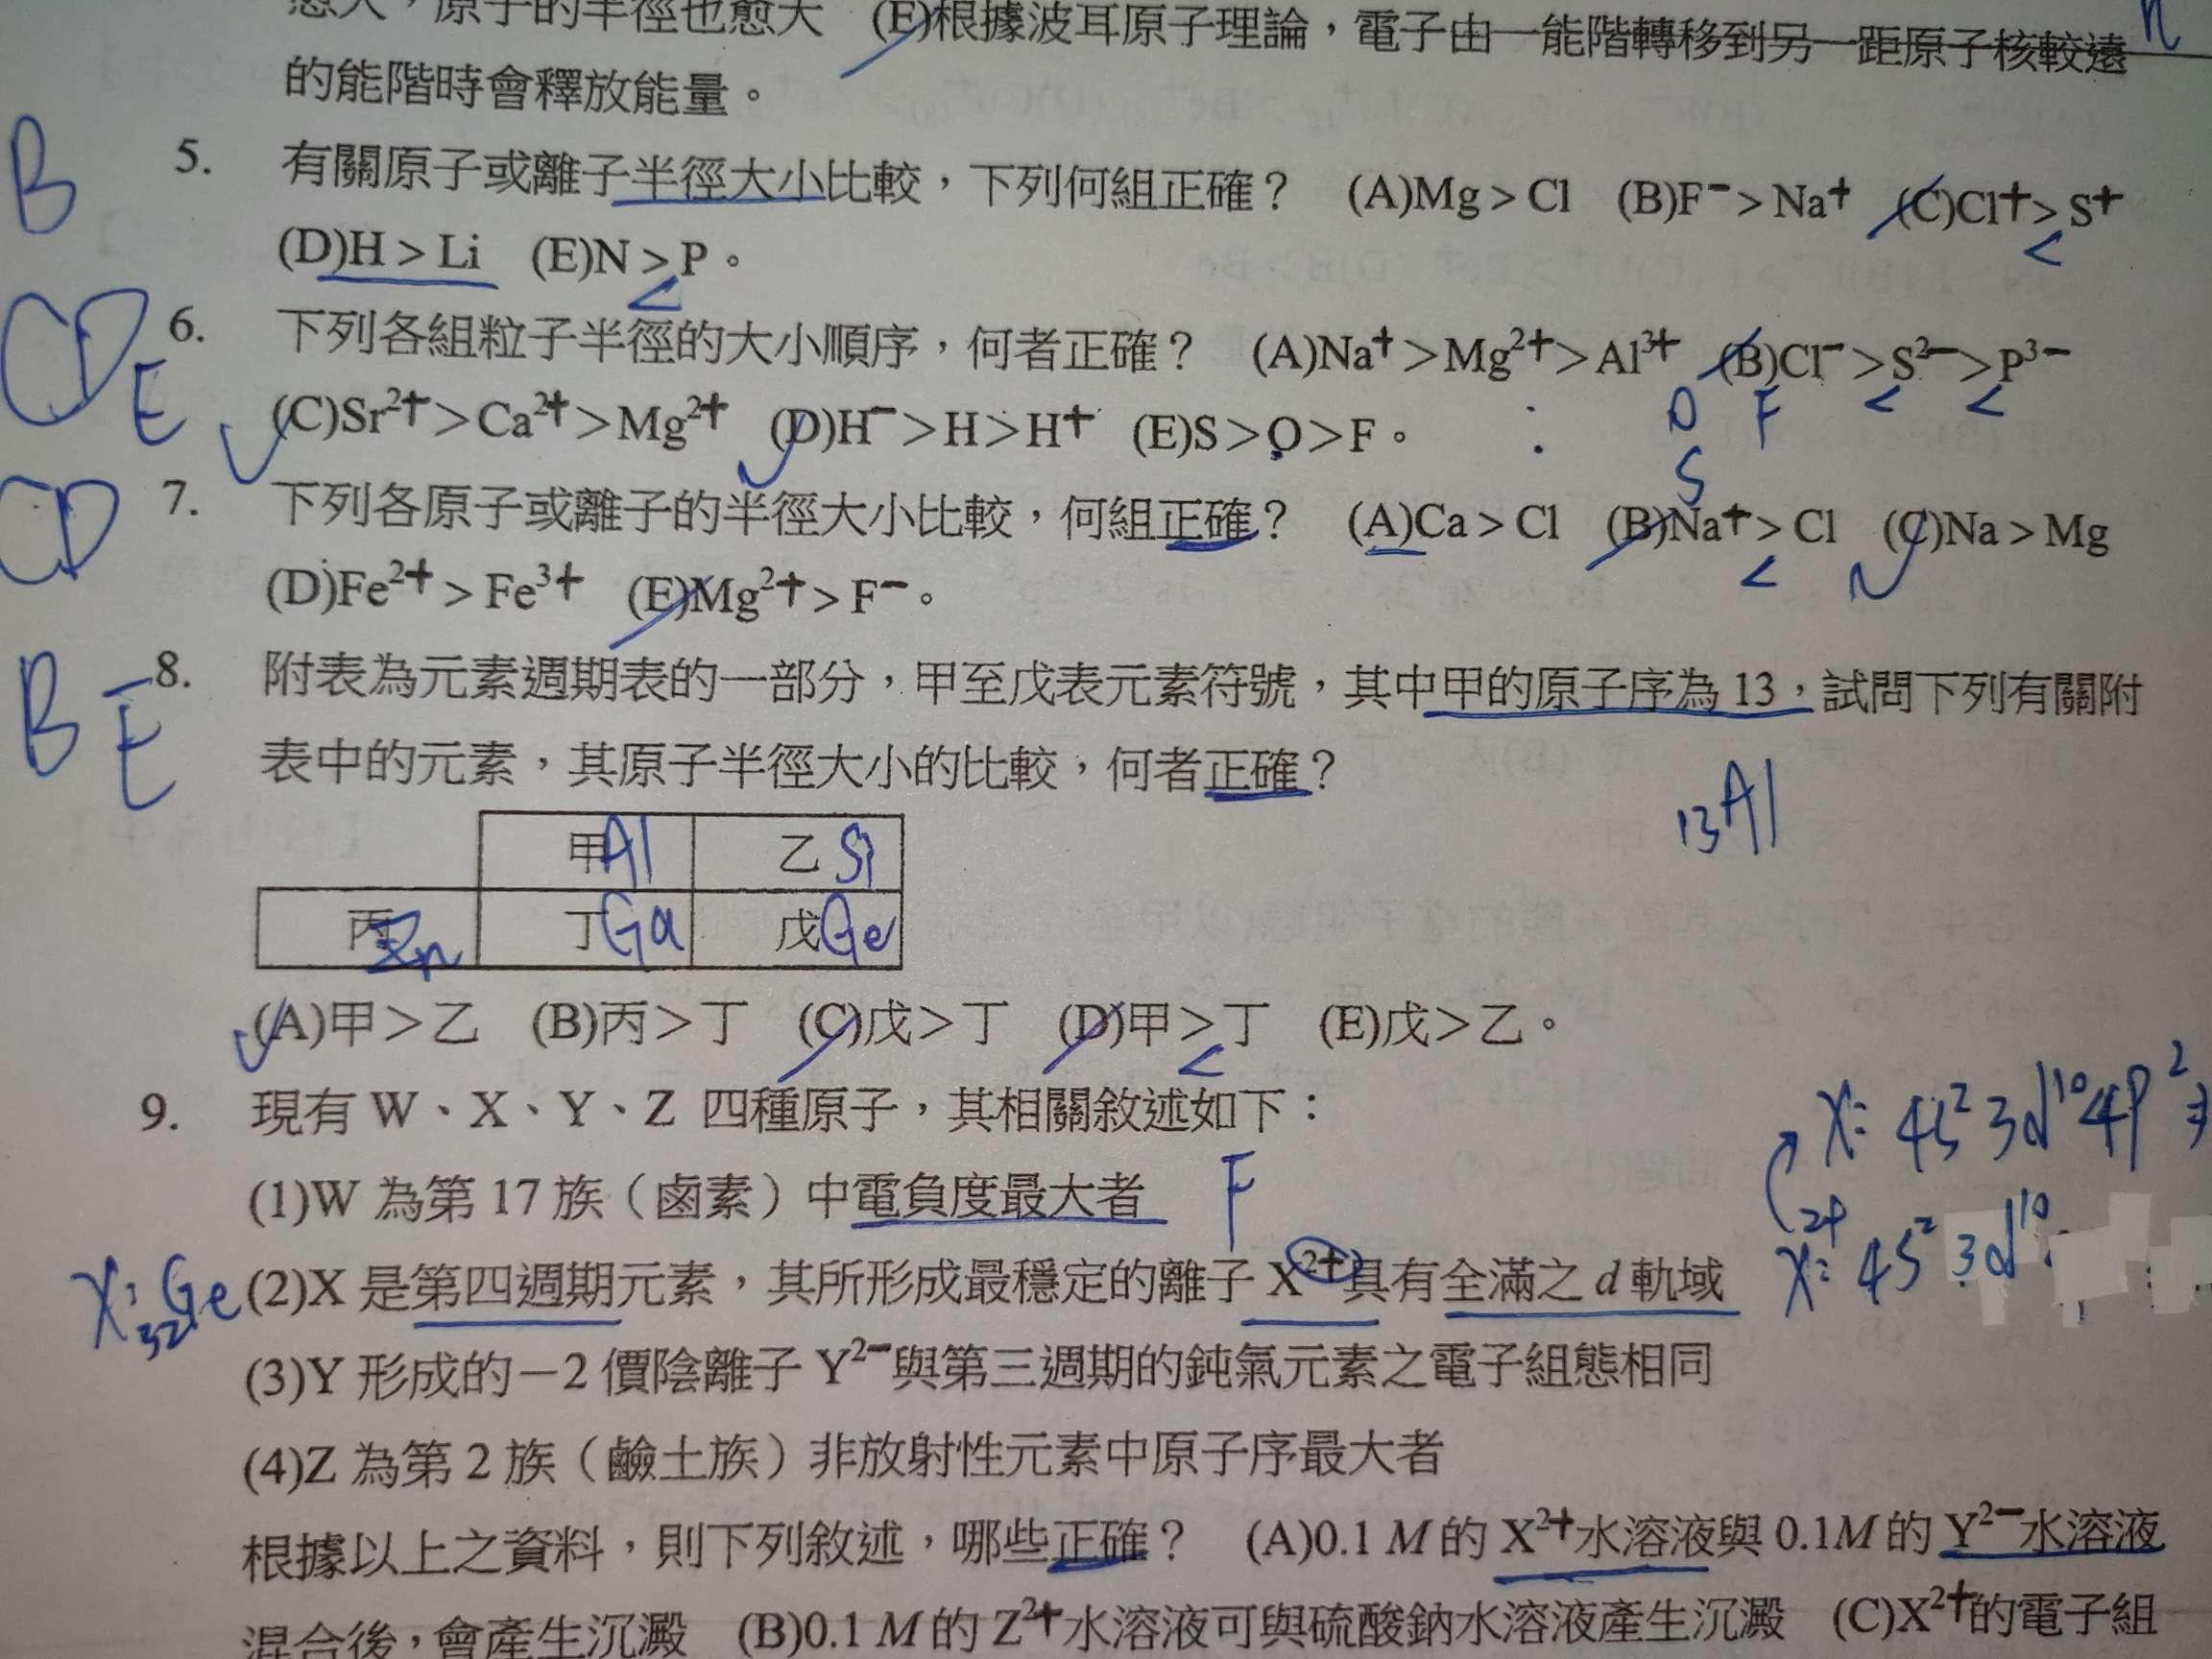 愈大，原子的半徑也愈大 (E)根據波耳原子理論，電子由一能階轉移到另一距原子核較遠
n
的能階時會釋放能量。
B
5. 有關原子或離子半徑大小比較，下列何組正確？ (A)Mg > Cl (B)F⁻ > Na⁺ (C)Cl⁺ > S⁺
<
(D)H > Li (E)N > P。
<
CDE
6. 下列各組粒子半徑的大小順序，何者正確？ (A)Na⁺ > Mg²⁺ > Al³⁺ (B)Cl⁻ > S²⁻ > P³⁻
< <
O F
S
(C)Sr²⁺ > Ca²⁺ > Mg²⁺ (D)H⁻ > H > H⁺ (E)S > O > F。
CD
7. 下列各原子或離子的半徑大小比較，何組正確？ (A)Ca > Cl (B)Na⁺ > Cl (C)Na > Mg
<
(D)Fe²⁺ > Fe³⁺ (E)Mg²⁺ > F⁻。
BE
8. 附表為元素週期表的一部分，甲至戊表元素符號，其中甲的原子序為 13，試問下列有關附
表中的元素，其原子半徑大小的比較，何者正確？
₁₃Al
甲 Al 乙 Si
丙 Zn 丁 Ga 戊 Ge
(A)甲＞乙 (B)丙＞丁 (C)戊＞丁 (D)甲＞丁 (E)戊＞乙。
<
9. 現有 W、X、Y、Z 四種原子，其相關敘述如下：
X: 4s² 3d¹⁰ 4p²
(1)W 為第 17 族（鹵素）中電負度最大者 F
X²⁺: 4s² 3d¹⁰
X: ₃₂Ge
(2)X 是第四週期元素，其所形成最穩定的離子 X²⁺具有全滿之 d 軌域
(3)Y 形成的－2 價陰離子 Y²⁻與第三週期的鈍氣元素之電子組態相同
(4)Z 為第 2 族（鹼土族）非放射性元素中原子序最大者
根據以上之資料，則下列敘述，哪些正確？ (A)0.1 M 的 X²⁺水溶液與 0.1M 的 Y²⁻水溶液
混合後，會產生沉澱 (B)0.1 M 的 Z²⁺水溶液可與硫酸鈉水溶液產生沉澱 (C)X²⁺的電子組